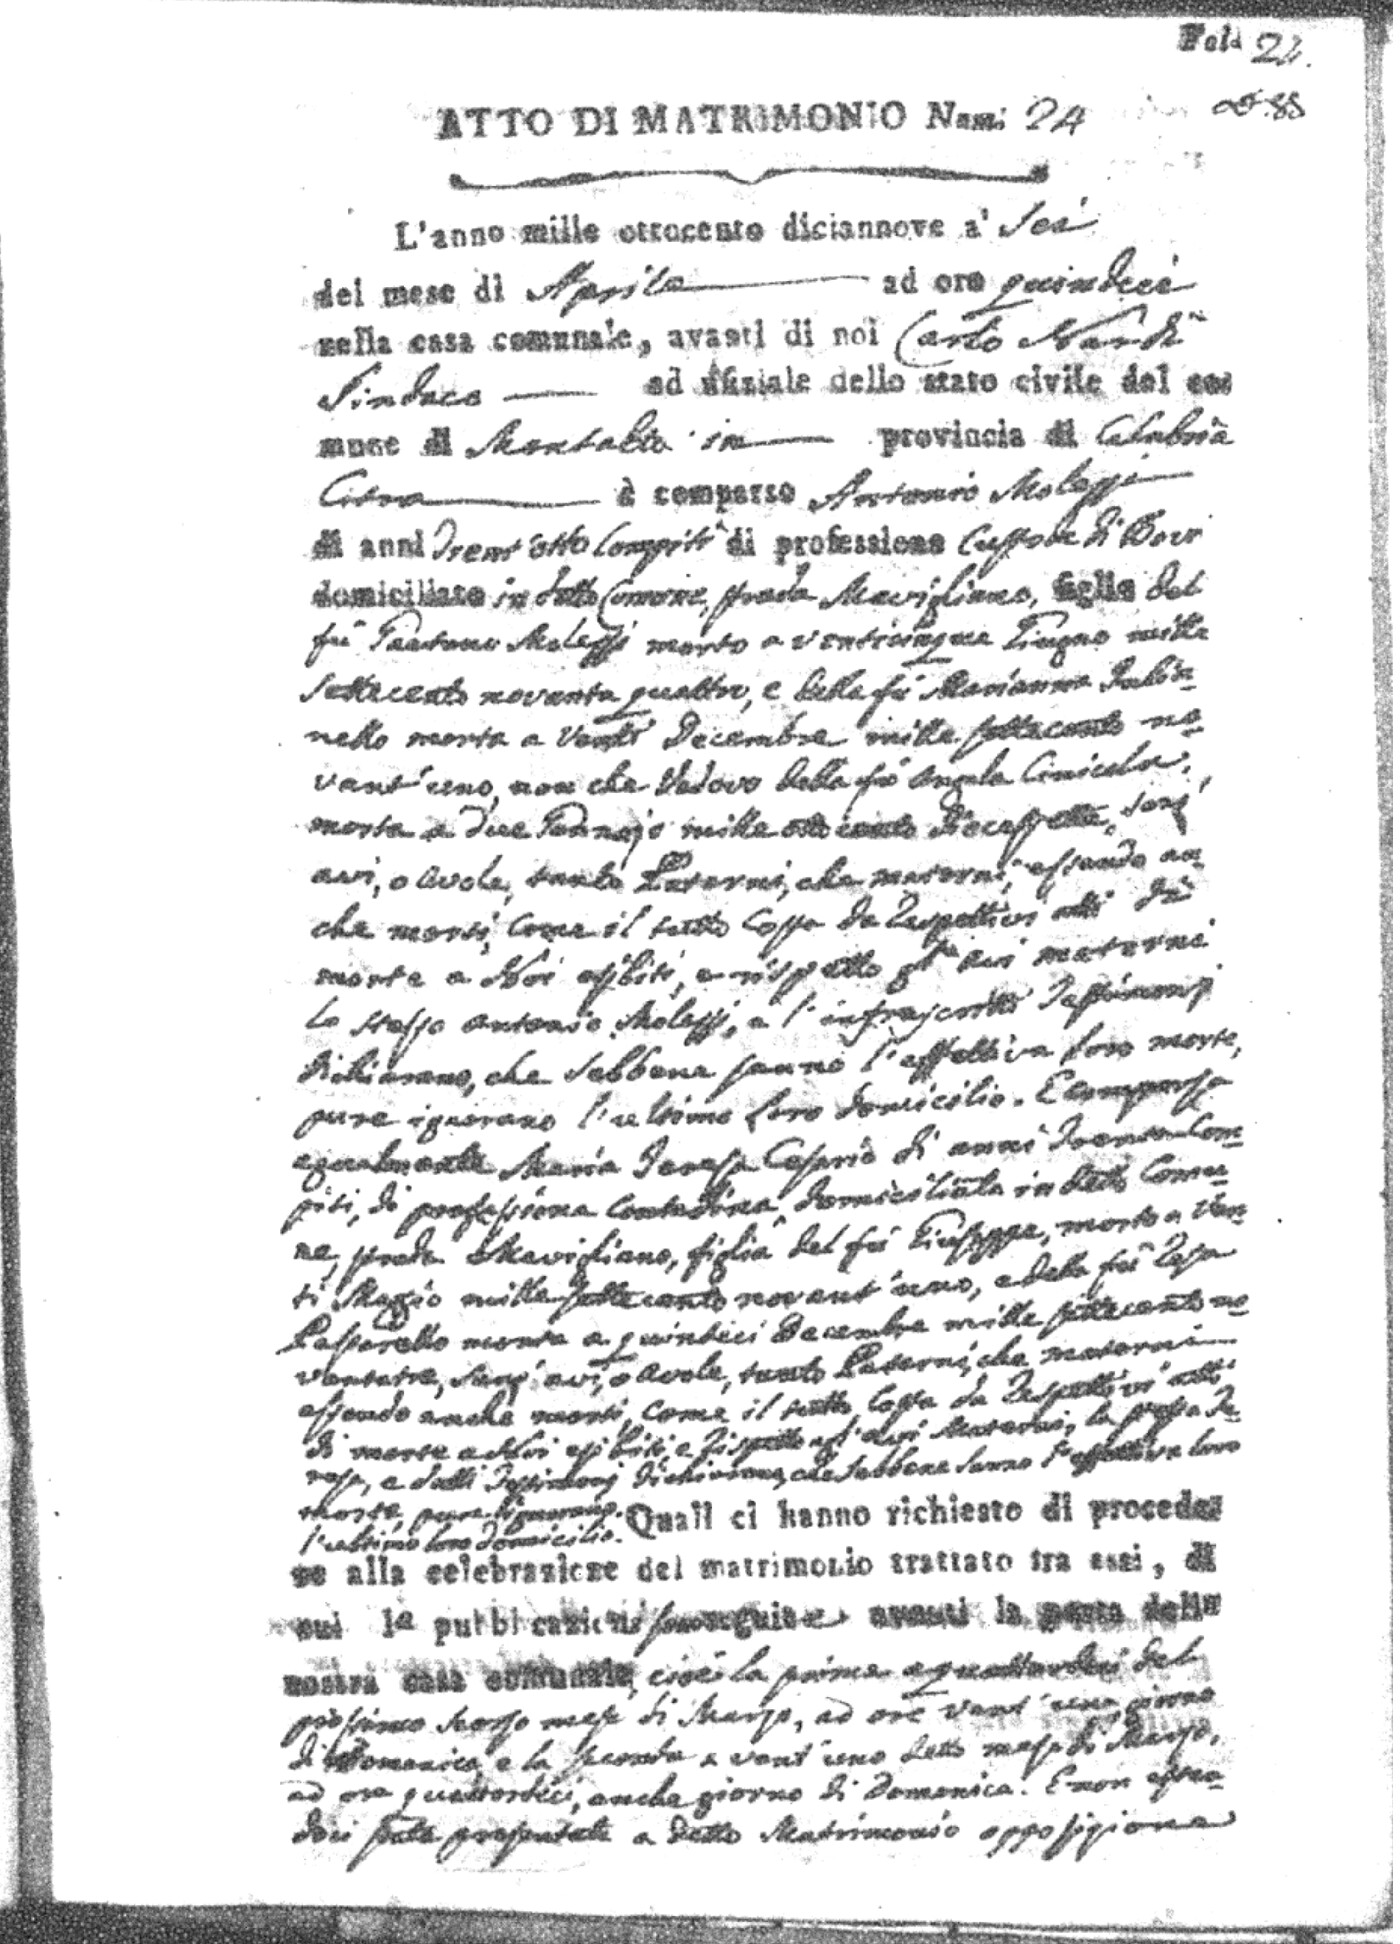 Fol. 24.
ATTO DI MATRIMONIO Num. 24
L'anno mille ottocento diciannove a' Sei
del mese di Aprile ad ore quindeci
nella casa comunale, avanti di noi Carlo Nardi
Sindaco ed ufiziale dello stato civile del co=
mune di Montalto in provincia di Calabria
Citra è comparso Antonio Molezzi
di anni Trent'otto compiti di professione Custode di Bovi
domiciliato in detto Comone, strada Mavigliano, figlio del
fù Gaetano Molezzi morto a venticinque Giugno mille
settecento novanta quattro, e della fù Marianna
nello morta a Venti Decembre mille settecento no=
vant'uno, non che Vedovo della fù Angela Cinicola,
morta a due Gennajo mille otto cento diecessette, senz'
avi, o avole, tanto Paterni, che materni, essendo an=
che morti, come il tutto costa da respettivi atti di
morte a Noi esibiti, e rispetto gli avi materni
lo stesso Antonio Molezzi, e l'infrascritti Testimonj
dichiarano, che sebbene sanno l'effettiva loro morte,
pure ignorano l'ultimo loro domicilio. E comparsa
egualmente Maria Teresa Cesario di anni Trenta com=
piti, di professione Contadina, domiciliata in detto Comu=
ne, strada Mavigliano, figlia del fù Giuseppe, morto a Ven=
ti Maggio mille settecento novant'uno, e della fù Rosa
Passarello morta a quindici Decembre mille settecento no=
vantatre, senz'avi, o avole, tanto Paterni, che materni
essendo anche morti, come il tutto costa da respettivi atti
di morte a Noi esibiti, e rispetto agl'avi Materni, la stessa Te=
resa, e detti Testimonj dichiarano, che sebbene sanno l'effettiva loro
morte, pure ignorano
l'ultimo loro domicilio. Quali ci hanno richiesto di procede=
re alla celebrazione del matrimonio trattato fra essi, di
cui le pubblicazioni sono seguite avanti la porta della
nostra casa comunale, cioè la prima a quattordeci del
prossimo scorso mese di Marzo, ad ore vent'una giorno
di Domenica, e la seconda a vent'uno detto mese di Marzo,
ad ore quattordeci, anche giorno di Domenica. E non essen=
doci stata presentata a detto Matrimonio opposizione